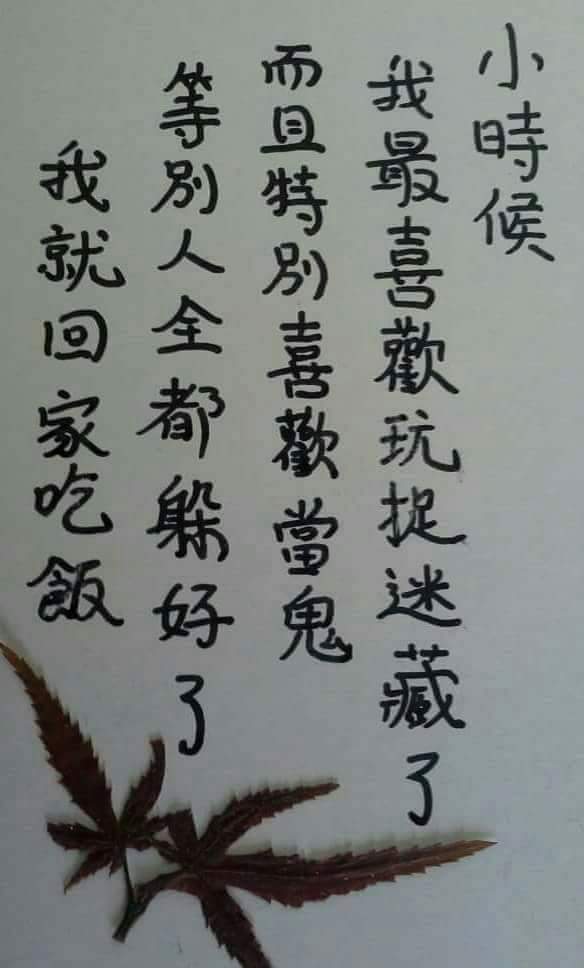 小時候
我最喜歡玩捉迷藏了
而且特別喜歡當鬼
等別人全都躲好了
我就回家吃飯